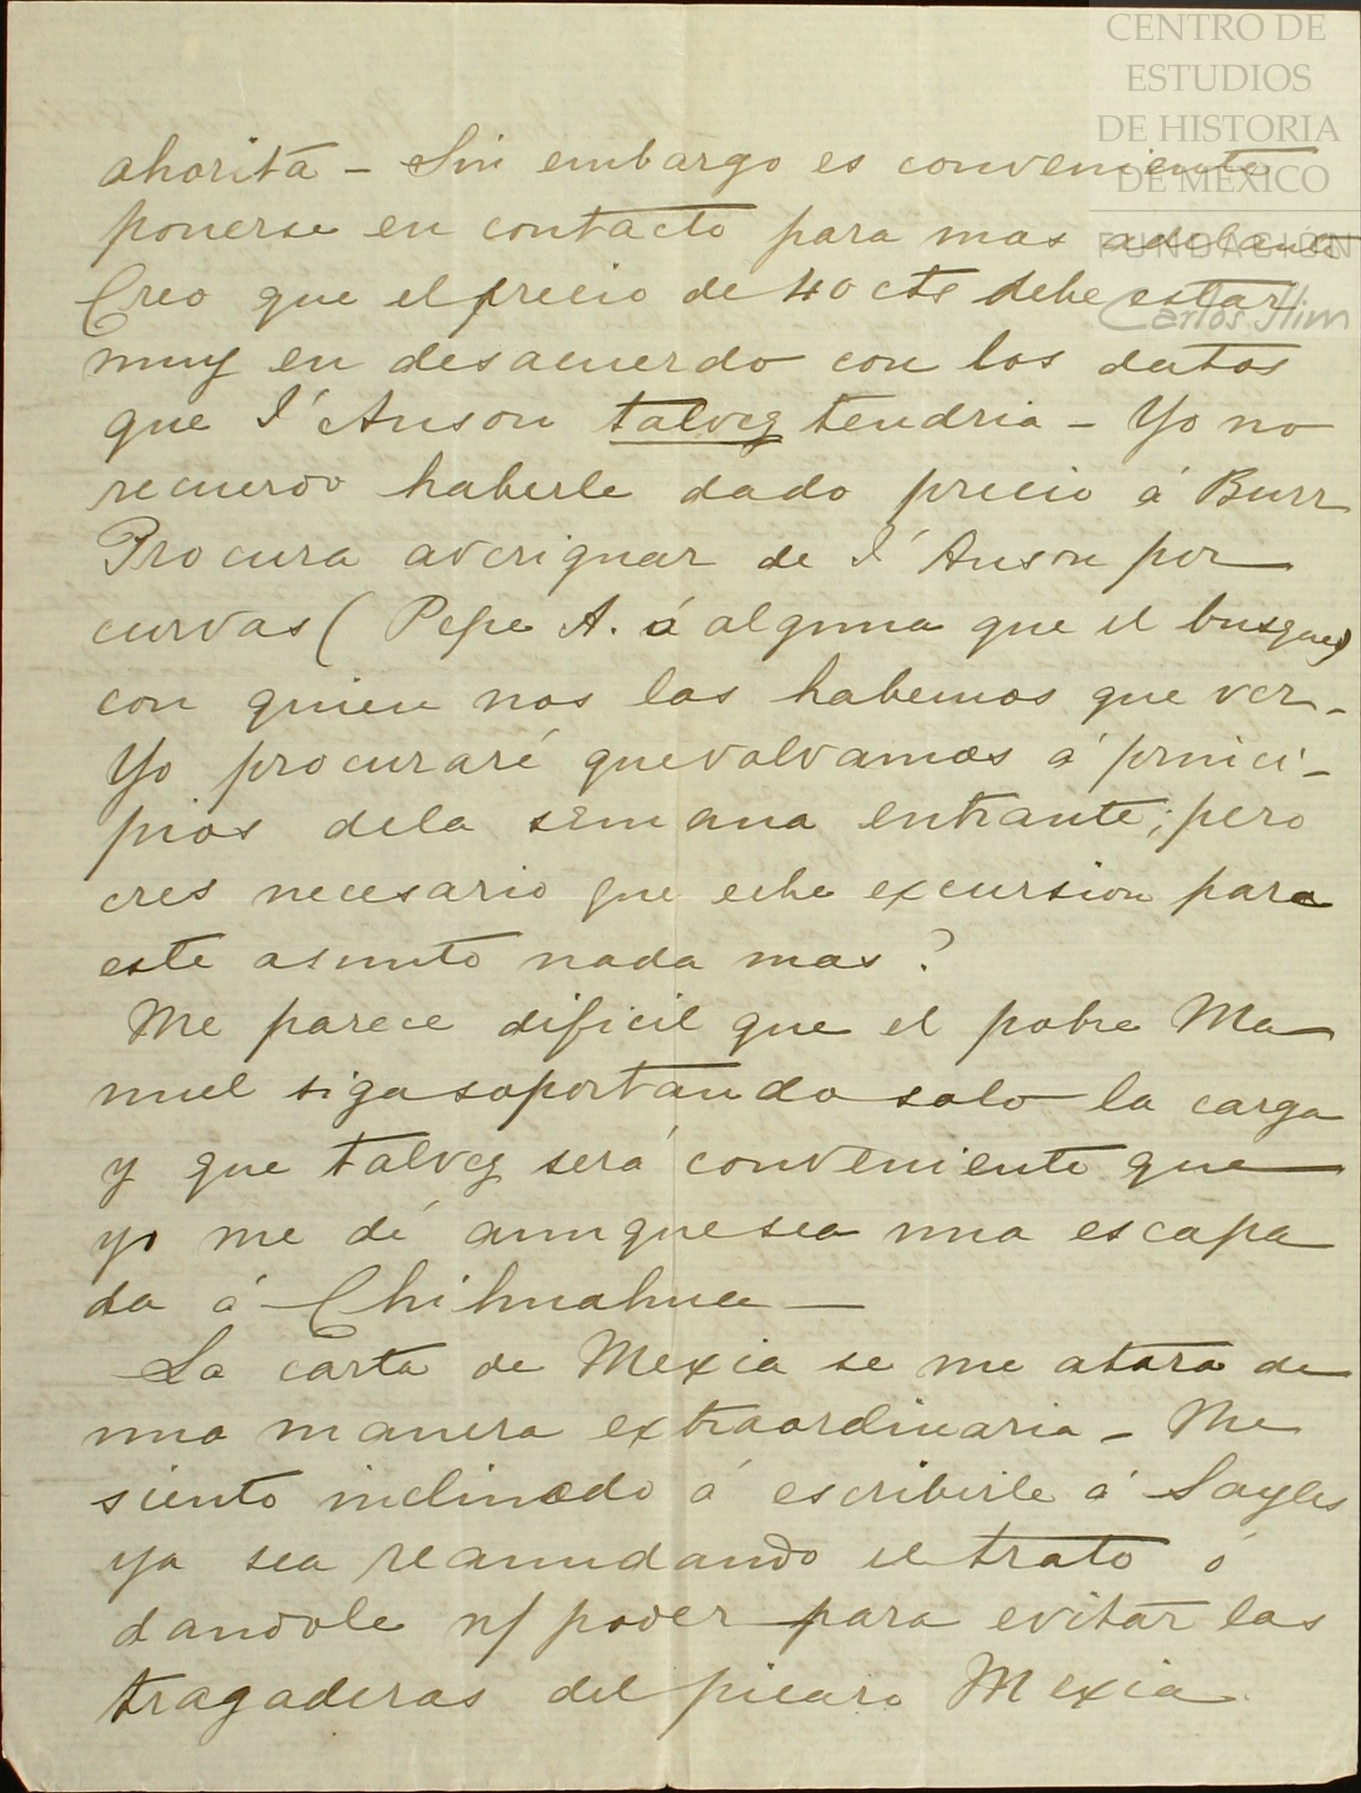 CENTRO DE
ESTUDIOS
DE HISTORIA
DE MÉXICO
FUNDACIÓN
Carlos Slim
ahorita - Sin embargo es conveniente
ponerse en contacto para mas adelante
Creo que el precio de 40 cts debe estar
muy en desacuerdo con los datos
que I'Anson talvez tendria - Yo no
recuerdo haberle dado precio á Burr
Procura averiguar de I'Anson por
curvas (Pepe A. ó alguna que el busque)
con quien nos las habemos que ver -
Yo procuraré que volvamos á princi-
pios de la semana entrante; pero
cres necesario que eche excursion para
este asunto nada mas?
Me parece dificil que el pobre Ma
nuel siga soportando solo la carga
y que talvez será conveniente que
yo me dé aunque sea una escapa
da á Chihuahua -
La carta de Mexia se me atora de
una manera extraordinaria - Me
siento inclinado á escribirle á Sayles
ya sea reanudando el trato ó
dandole n/ poder para evitar las
tragaderas del picaro Mexia.